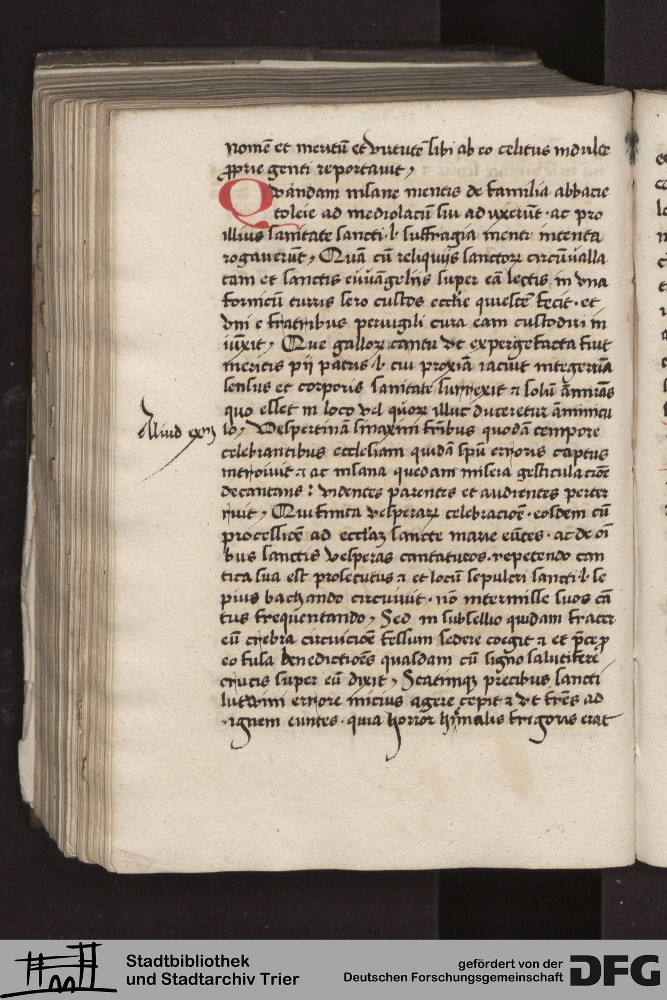 nomē et meritū et virtutē sibi ab eo celitus indulte
ꝓprie genti reportauit,
Quandam insane mentis de familia abbacie
toleie ad mediolacū siu aduxerūt · ac pro
illius sanitate sancti · l · suffragia menti intenta
rogauerūt, Quā cū reliquijs sanctorꝫ circūualla
tam et sanctis euuāgelijs super eā lectis in vna
fornicū turris sero custos ecclie quiescē fecit · et
vni e fratribus peruigili cura eam custodiri in
iūxit, Que gallorꝫ cantu vt expergefacta fuit
meritis pij patris · l · cui proxiā iacuit integerrīa
sensus et corporis sanitate surrexit
quo esset in loco vel quorꝫ illuc duceretur āminicu
lo, Vespertinā sinaxim fribus quodā tempore
Aliud exm
celebrantibus ecclesiam quidā spū erroris captus
introiuit ⁊ ac insana quedam misera gesticulacōe
decantans : videntes parentes et audientes perter
ruit, Qui finita vesperarꝫ celebracioē · eosdem cū
processioē ad eccl'aꝫ sancte marie eūtes · ac de oī
bus sanctis vesperas cantaturos · repetendo can
tica sua est prosecutus ⁊ et locū sepulcri sancti · l · se
pius bachando circuiuit · nō intermisse suos cā
tus frequentando, Sed in subsellio quidam frater
eū crebra circuicioē fessum sedere coegit ⁊ et
eo fusa benedictioēs quasdam cū signo salutifere
crucis super eū dixit, Statimqꝫ precibus sancti
lutwini errore micius agere cepit ⁊ vt frēs ad
ignem euntes · quia horror hymalis frigoris erat
Stadtbibliothek
und Stadtarchiv Trier
gefördert von der
Deutschen Forschungsgemeinschaft
DFG